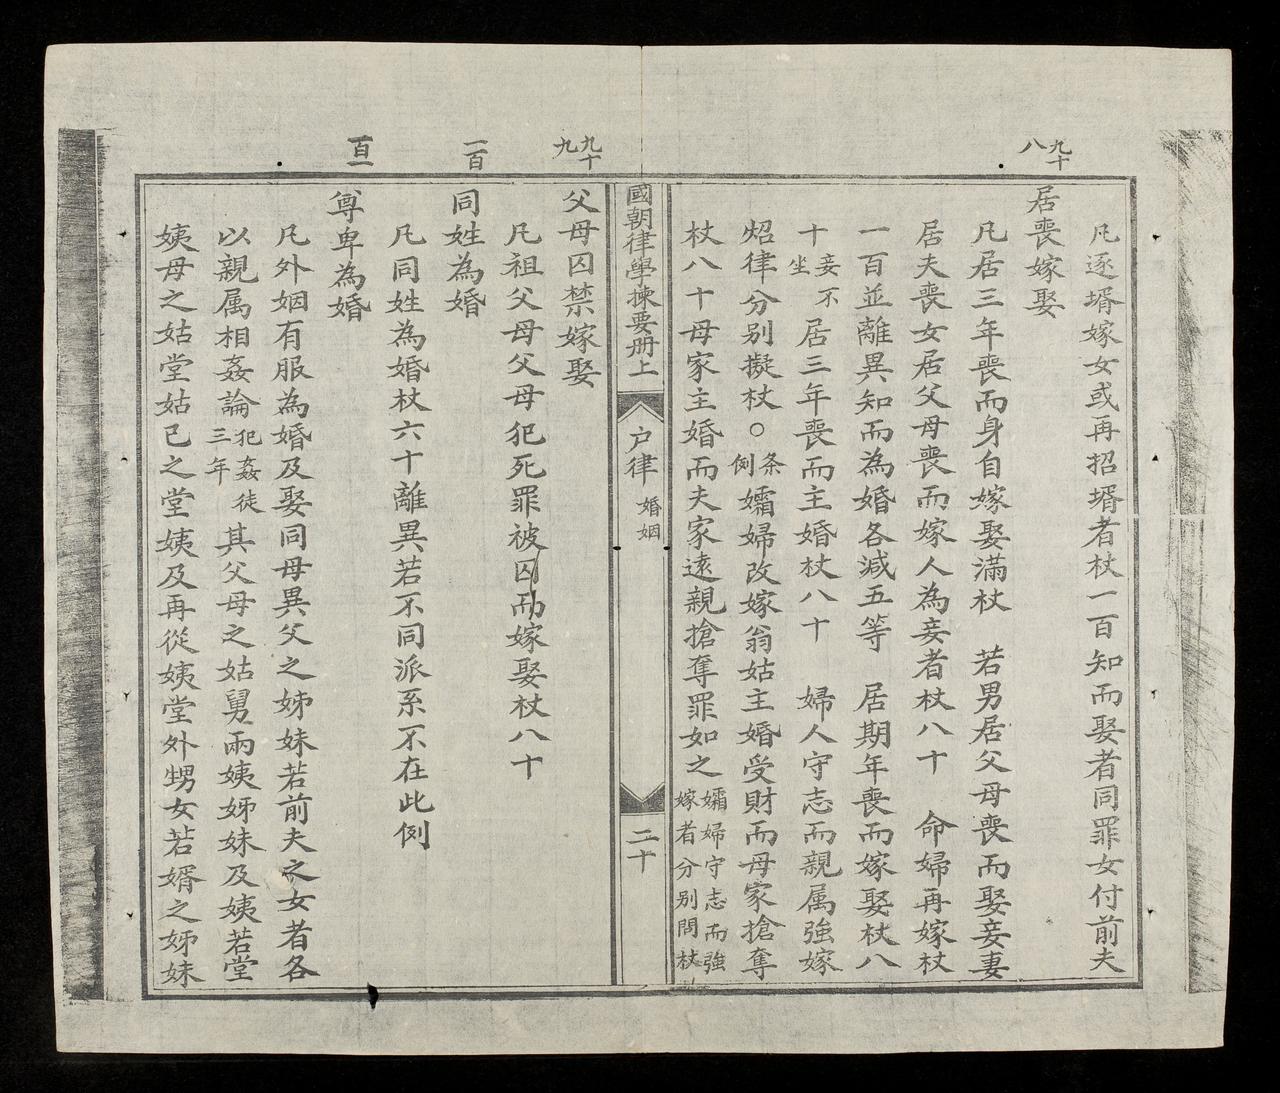 九十八
凡逐壻嫁女或再招壻者杖一百知而娶者同罪女付前夫
居喪嫁娶
凡居三年喪而身自嫁娶滿杖　若男居父母喪而娶妾妻
居夫喪女居父母喪而嫁人為妾者杖八十　命婦再嫁杖
一百並離異知而為婚各減五等　居期年喪而嫁娶杖八
十妾不坐居三年喪而主婚杖八十　婦人守志而親属強嫁
炤律分別擬杖○条例孀婦改嫁翁姑主婚受財而母家搶奪
杖八十母家主婚而夫家遠親搶奪罪如之孀婦守志而強嫁者分別問杖
國朝律學揀要册上
户律
婚姻
二十
九十九
父母囚禁嫁娶
凡祖父母父母犯死罪被囚而嫁娶杖八十
一百
同姓為婚
凡同姓為婚杖六十離異若不同派系不在此例
百一
尊卑為婚
凡外姻有服為婚及娶同母異父之姊妹若前夫之女者各
以親属相姦論犯姦徒三年其父母之姑舅兩姨姊妹及姨若堂
姨母之姑堂姑已之堂姨及再從姨堂外甥女若婿之姊妹